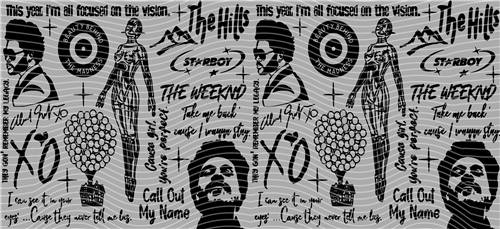 This year, I'm all focused on the vision.
The Hills
BEAUTY BEHIND
THE MADNESS
STARBOY
THE WEEKND
'Take me back'
'cause I wanna stay.
Cause girl,
you're perfect
THEY GON' REMEMBER MY LEGACY.
XO
I can see it in your
eyes' ...Cause they never tell me lies.
Call Out
My Name
This year, I'm all focused on the vision.
The Hills
BEAUTY BEHIND
THE MADNESS
STARBOY
THE WEEKND
'Take me back'
'cause I wanna stay.
Cause girl,
you're perfect
THEY GON' REMEMBER MY LEGACY.
XO
I can see it in your
eyes' ...Cause they never tell me lies.
Call Out
My Name